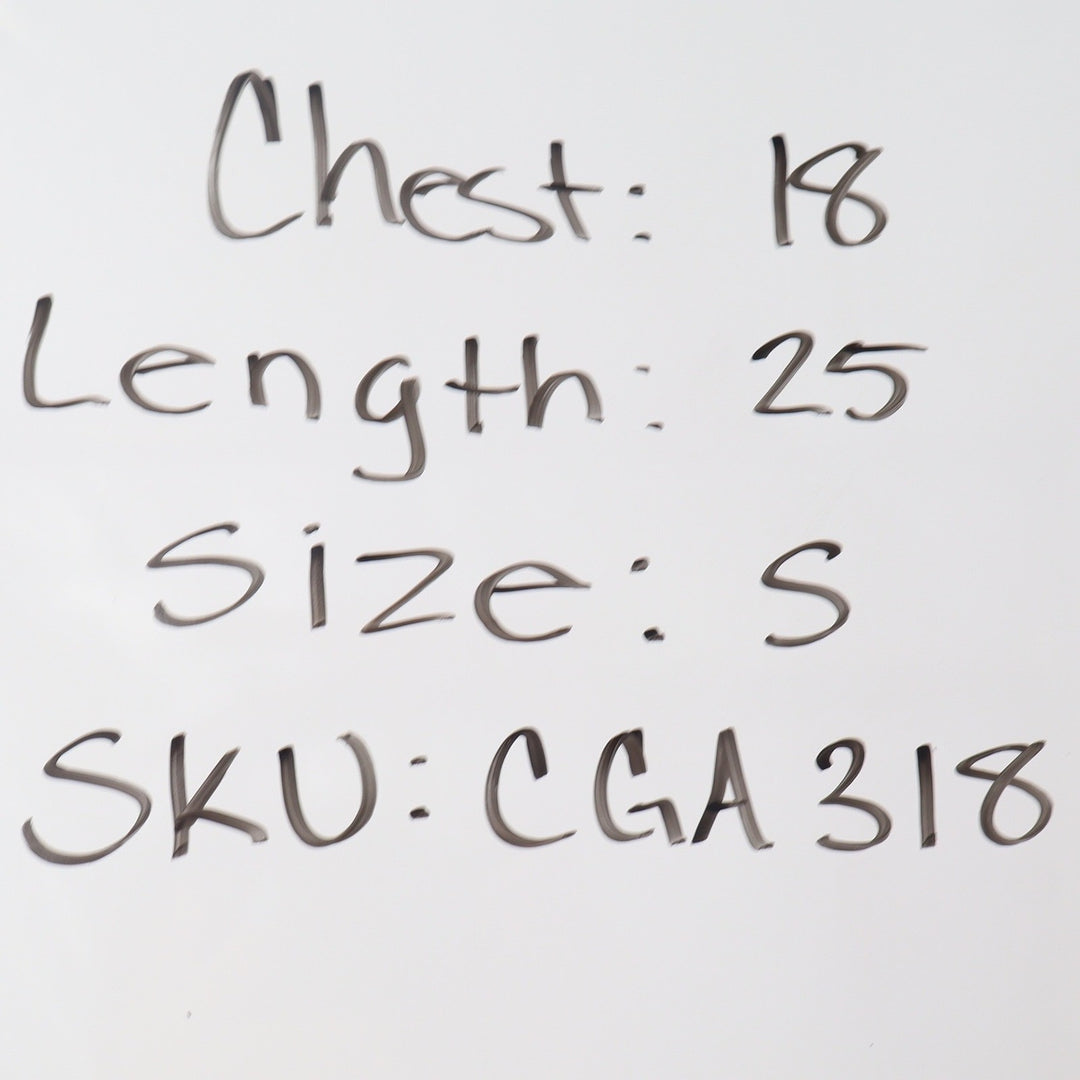 Chest: 18
Length: 25
Size: S
SKU: CGA318